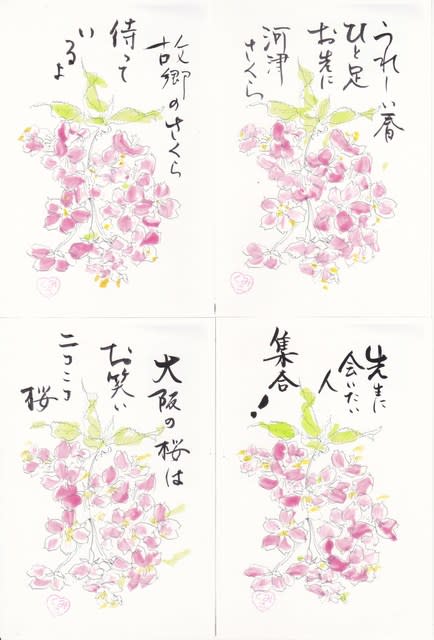 故郷のさくら
待って
いるよ
うれしい春
ひと足
お先に
河津
さくら
大阪の桜は
お笑い
ニコニコ
桜
先生に
会いたい
人
集合!